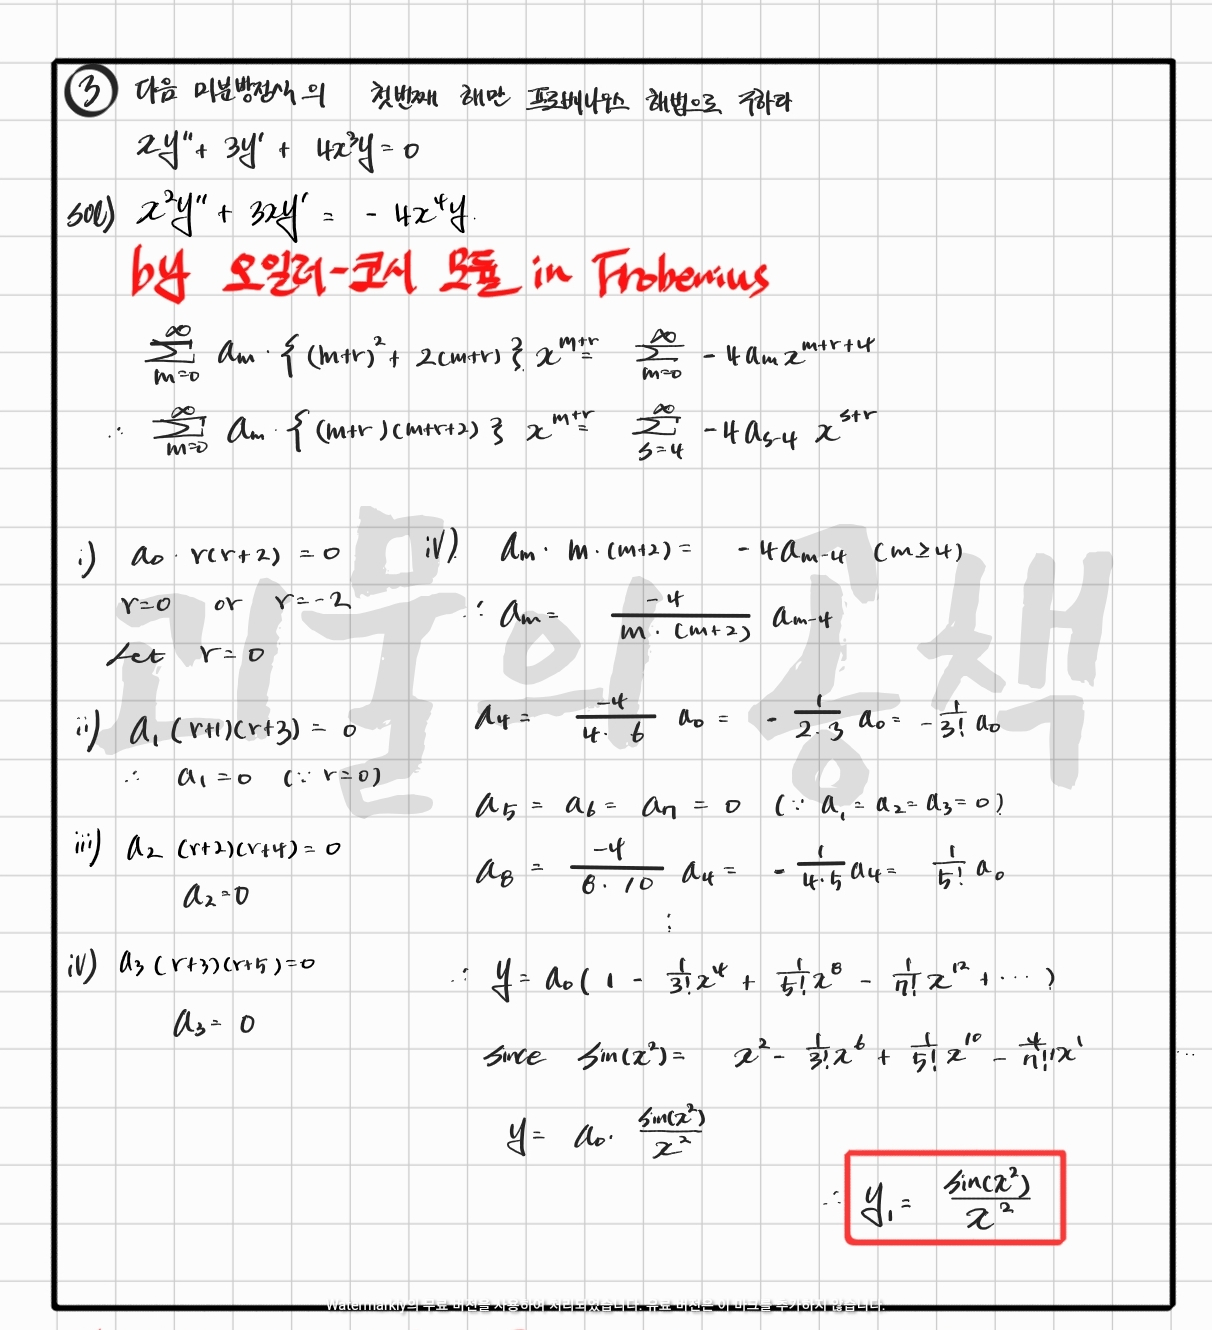 ③ 다음 미분방정식의 첫번째 해만 프로베니우스 해법으로 구하라
xy'' + 3y' + 4x³y = 0
sol) x²y'' + 3xy' = - 4x⁴y.
by 오일러-코시 모듈 in Frobenius
∑_{m=0}^{∞} aₘ · { (m+r)² + 2(m+r) } x^{m+r} = ∑_{m=0}^{∞} -4aₘ x^{m+r+4}
∴ ∑_{m=0}^{∞} aₘ · { (m+r)(m+r+2) } x^{m+r} = ∑_{s=4}^{∞} -4a_{s-4} x^{s+r}
i) a₀ · r(r+2) = 0
r=0 or r=-2
Let r=0
ii) a₁ (r+1)(r+3) = 0
∴ a₁ = 0 (∵ r=0)
iii) a₂ (r+2)(r+4) = 0
a₂ = 0
iv) a₃ (r+3)(r+5) = 0
a₃ = 0
iv) aₘ · m · (m+2) = -4a_{m-4} (m≥4)
∴ aₘ = -4/(m · (m+2)) a_{m-4}
a₄ = -4/(4 · 6) a₀ = - 1/(2·3) a₀ = - 1/3! a₀
a₅ = a₆ = a₇ = 0 (∵ a₁ = a₂ = a₃ = 0)
a₈ = -4/(8 · 10) a₄ = - 1/(4·5) a₄ = 1/5! a₀
⋮
∴ y = a₀ ( 1 - 1/3! x⁴ + 1/5! x⁸ - 1/7! x¹² + ⋯ )
since sin(x²) = x² - 1/3! x⁶ + 1/5! x¹⁰ - 4/7! x¹ ⋯
y = a₀ · sin(x²)/x²
∴ y₁ = sin(x²)/x²
괴물의 공책
Watermarkly의 무료 버전을 사용하여 처리되었습니다. 유료 버전은 이 마크를 추가하지 않습니다.